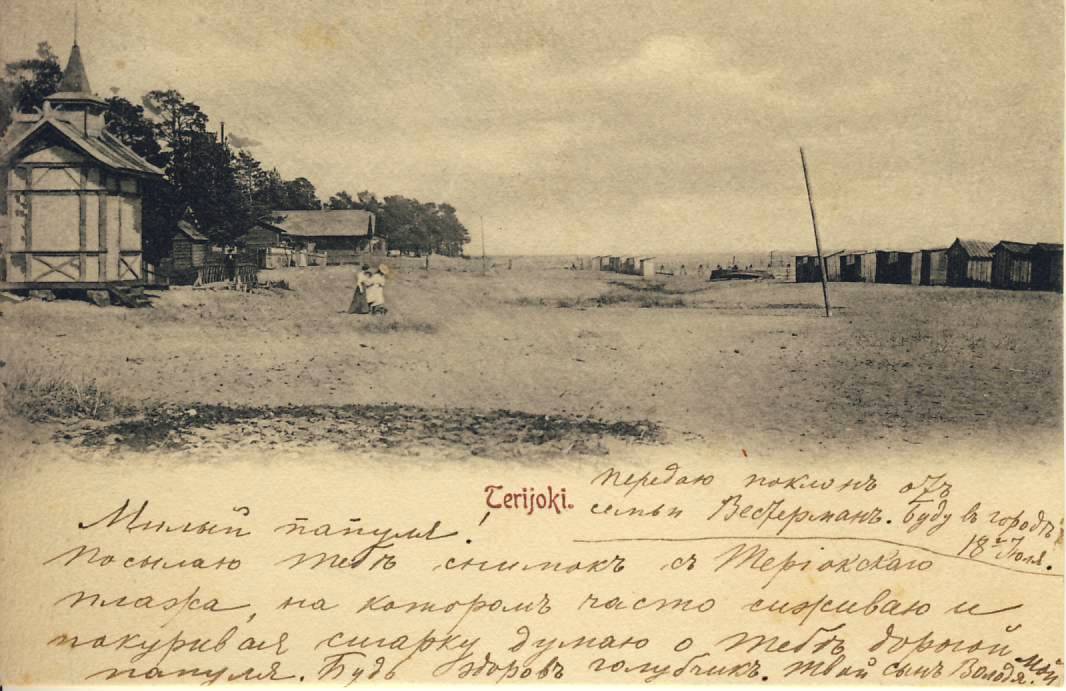 Terijoki.
Передаю поклонъ отъ
семьи Вестерманъ. Буду въ городѣ
18го Іюля.
Милый папуля!
Посылаю тебѣ снимокъ съ Теріокскаго
пляжа, на которомъ часто сиживаю и
покуривая сигарку думаю о тебѣ дорогой мой
папуля. Будь здоровъ голубчикъ. твой сынъ Володя.